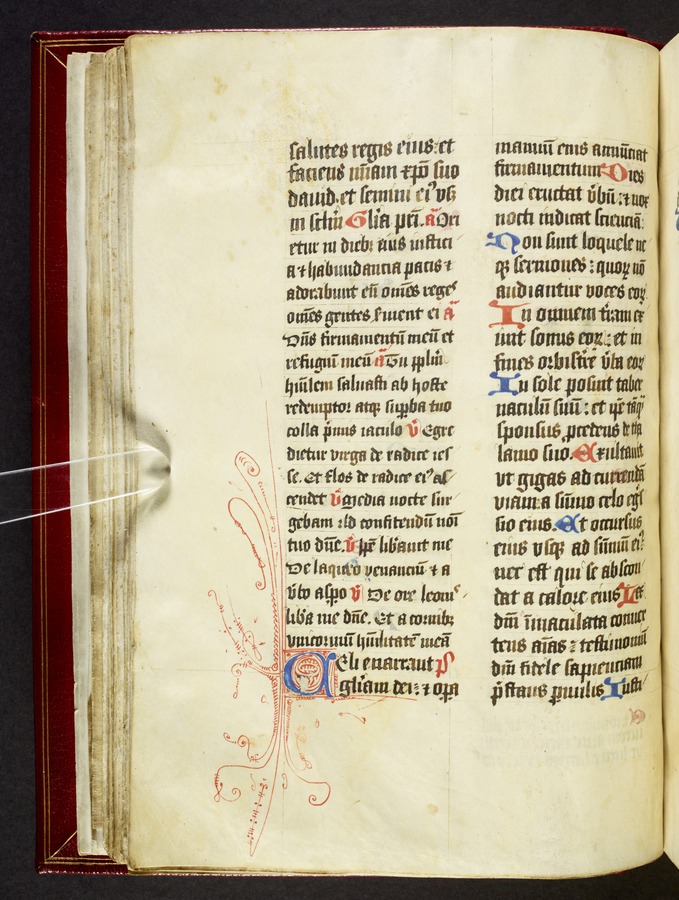 salutes regis eius: et
faciens mīam xp̄o suo
dauid. et semini eiꝰ vsqꝫ
in sclm̄ Glīa pri. ā Ori
etur in diebꝫ dn̄s iusticia
a ⁊ habundancia pacis ⁊
adorabunt eū om̄es reges
om̄es gentes ẜuient ei ā
Dn̄s firmamentū meū et
refugiū meū ā Tu pplm̄
hūilem saluasti ab hoste
redemptor atqꝫ supba tuo
colla p̄mis iaculo v̄ Egre
dietur virga de radice ies
se. Et flos de radice eiꝰ as
cendet v̄ Media nocte sur
gebam Ad confitendū noī
tuo dn̄e. v̄ ꝑe libauit me
De laqueo venanciū ⁊ a
v̄bo aspo v̄ De ore leonis
liba me dn̄e. Et a cornibꝫ
vnicornuū hūilitatē meā
Celi enarrant ps
glīam dei: ⁊ oꝑa
manuū eius annūciat
firmamentum Dies
diei eructat v̄bū: ⁊ nox
nocti indicat scienciā:
Non sunt loquele ne
qꝫ sermones: quoꝝ nō
audiantur voces eoꝝ
In omnem t̄ram ex
iuit sonus eoꝝ: et in
fines orbis tr̄e v̄ba eoꝝ
In sole posuit taber
naculū suū: et ip̄e tāqꝫ
sponsus, pcedens de tha
lamo suo. Exultauit
vt gigas ad currendā
viam: a sūmo celo egs
sio eius. Et occursus
eius vsqꝫ ad sūmū eiꝰ:
nec est qui se abscon
dat a calore eius Lex
dm̄i īmaculata conuer
tens aīas: testimoniū
dm̄i fidele sapienciam
p̄stans ꝑuulis Iusti